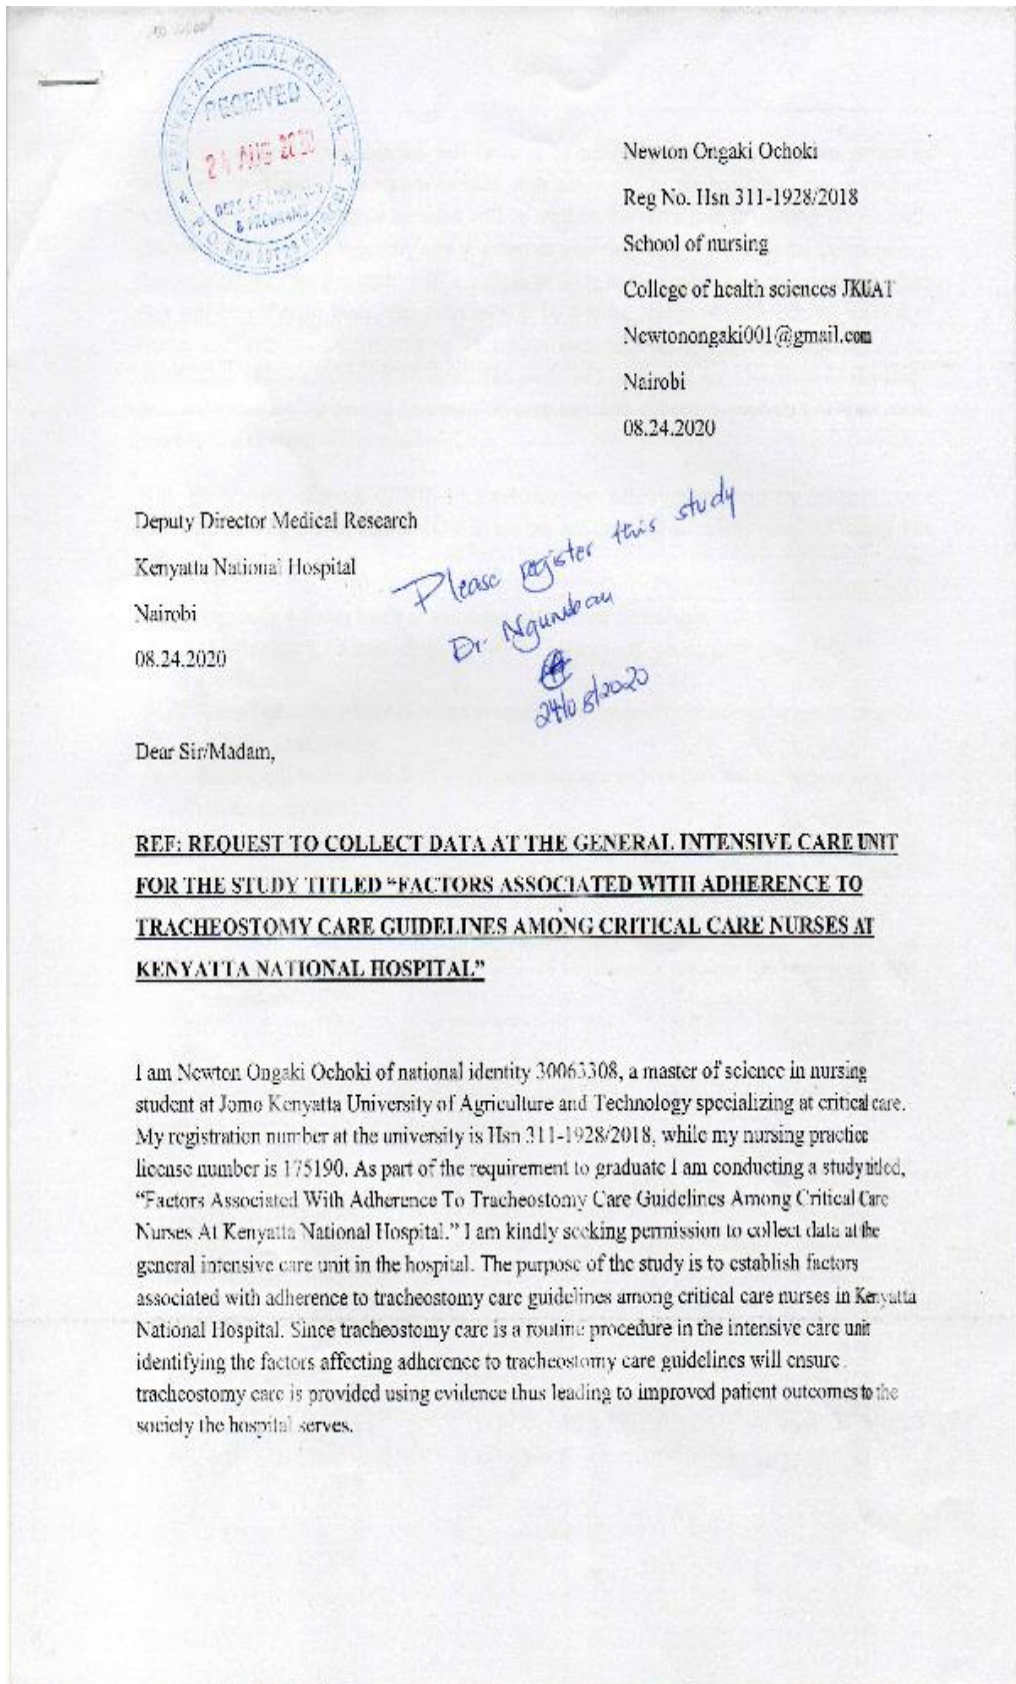 KENYATTA NATIONAL HOSPITAL
RECEIVED
24 AUG 2020
DEPT. OF
& PROGRAMS
P. O. Box 20723 NAIROBI
Newton Ongaki Ochoki
Reg No. Hsn 311-1928/2018
School of nursing
College of health sciences JKUAT
Newtonongaki001@gmail.com
Nairobi
08.24.2020
Deputy Director Medical Research
Kenyatta National Hospital
Nairobi
08.24.2020
Please register this study
Dr
24/08/2020
Dear Sir/Madam,
REF: REQUEST TO COLLECT DATA AT THE GENERAL INTENSIVE CARE UNIT
FOR THE STUDY TITLED “FACTORS ASSOCIATED WITH ADHERENCE TO
TRACHEOSTOMY CARE GUIDELINES AMONG CRITICAL CARE NURSES AT
KENYATTA NATIONAL HOSPITAL”
I am Newton Ongaki Ochoki of national identity 30063308, a master of science in nursing
student at Jomo Kenyatta University of Agriculture and Technology specializing at critical care.
My registration number at the university is Hsn 311-1928/2018, while my nursing practice
license number is 175190. As part of the requirement to graduate I am conducting a study titled,
“Factors Associated With Adherence To Tracheostomy Care Guidelines Among Critical Care
Nurses At Kenyatta National Hospital.” I am kindly seeking permission to collect data at the
general intensive care unit in the hospital. The purpose of the study is to establish factors
associated with adherence to tracheostomy care guidelines among critical care nurses in Kenyatta
National Hospital. Since tracheostomy care is a routine procedure in the intensive care unit
identifying the factors affecting adherence to tracheostomy care guidelines will ensure
tracheostomy care is provided using evidence thus leading to improved patient outcomes to the
society the hospital serves.